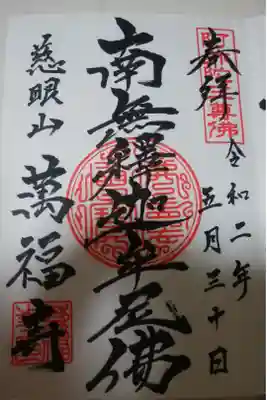 奉拝
令和二年
五月三十日
南無釋迦牟尼佛
慈眼山
萬福寺